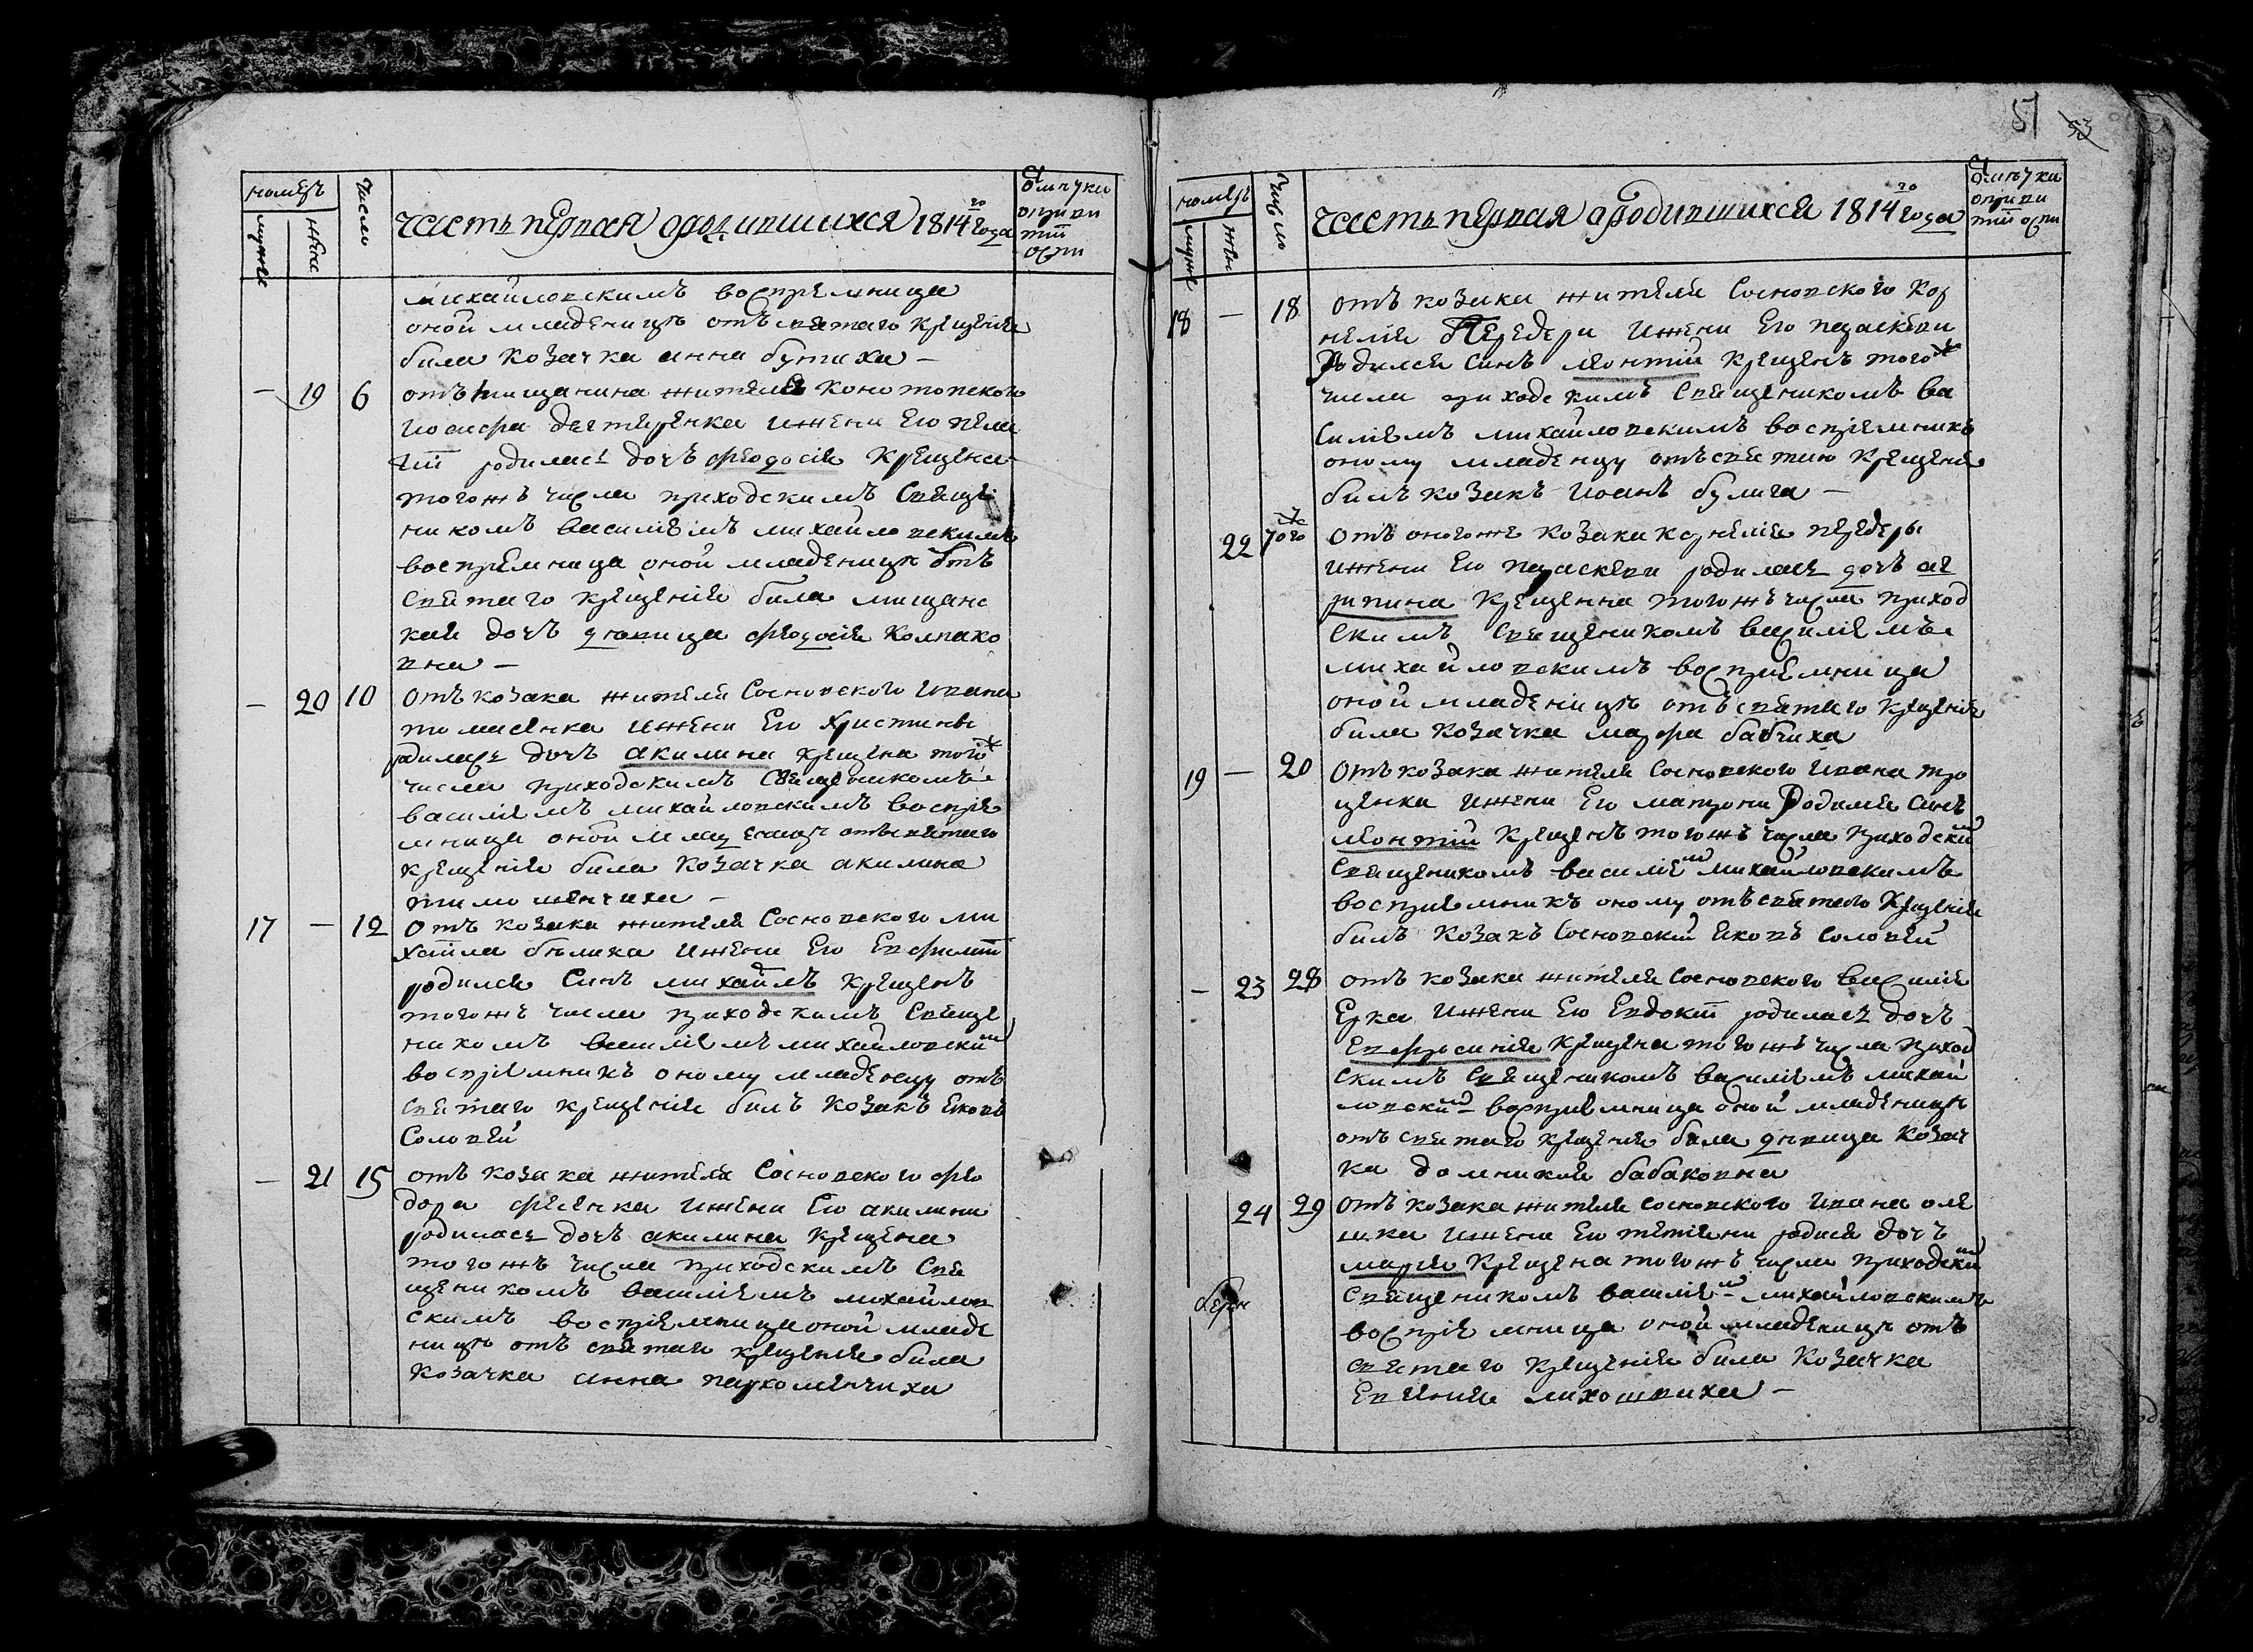 номеръ
мужеск
женс
число
Часть первая о родившихся 1814 го года
михайловскимъ воспрiемница
оной младеницѣ отъ святаго крещенiя
била козачка анна бутиха —
— 19 6 отъ мищанина жителя конотопского
Иосифа дегтяренка Ижени Его пела
гiи родилась дочъ феодосiя крещена
тогожъ числа приходскимъ Свяще
никомъ василiемъ михайловскимъ
воспрiемница оной младеницѣ отъ
Святаго крещенiя била мищанс
кая дочъ дѣвица феодосiя Колпако
вна —
— 20 10 отъ козака жителя Сосновского Ивана
Ижени Его Христины
родилась дочъ акилина крещена тогож
числа приходскимъ Священикомъ
василiемъ михайловскимъ воспрiе
мница оной младеницѣ отъ святаго
крещенiя била козачка акилина
17 — 12 отъ козака жителя Сосновского ми
хайла бѣлика Ижени Его Евфимiи
родился Синъ михаилъ крещенъ
тогожъ числа приходскимъ Свяще
никомъ василiемъ михайловским
воспрiемникъ оному младенцу отъ
Святаго крещенiя билъ козакъ Яковъ
Соловей
— 21 15 отъ козака жителя Сосновского фео
дора фесенка Ижени Его акилини
родилась дочъ акилина крещена
тогожъ числа приходскимъ Свя
щеникомъ василiемъ михайлов
скимъ воспрiемница оной младе
ницѣ отъ святаго крещенiя била
козачка анна пархоменчиха
51 53
номеръ
муже
жен
число
Часть первая о родившихся 1814 го года
18 — 18 отъ козака жителя Сосновского Кор
нелiя Передери Ижени Его параскеви
Родился Синъ леонтiй крещенъ тогож
числа приходскимъ Священикомъ Ва
силiемъ михайловскимъ воспрiемникъ
оному младенцу отъ святаго крещенiя
билъ козакъ Иоанъ булига —
22 того отъ оногоже козака корнелiя передеры
Ижени Его параскеви родилась дочъ аг
рипина крещенна тогожъ числа приход
скимъ Священикомъ василiемъ
михайловскимъ воспрiемница
оной младеницѣ отъ святаго крещенiя
била козачка марфа бабчиха
19 — 20 отъ козака жителя Сосновского Ивана про
ценка Ижени Его матрони Родился Синъ
леонтiй крещенъ тогожъ числа приходским
Священикомъ василiем михайловскимъ
воспрiемникъ оному отъ святаго крещенiя
билъ козакъ Сосновскiй Яковъ Соловей
— 23 28 отъ козака жителя Сосновского василiя
Ерка Ижени Его Евдокiи родилась дочъ
Евфросинiя крещена тогожъ числа приход
скимъ Священикомъ василiемъ михай
ловским воспрiемница оной младеницѣ
отъ святаго крещенiя била дѣвица козач
ка домникия бабаковна
24 29 отъ козака жителя сосновского Ивана оле
Ижени Его татiяни родися дочъ
марiя крещена тогожъ числа приходским
Священикомъ василiем михайловскимъ
воспрiемница оной младеницѣ отъ
святаго крещенiя била козачка
Евгенiя лихошвиха —